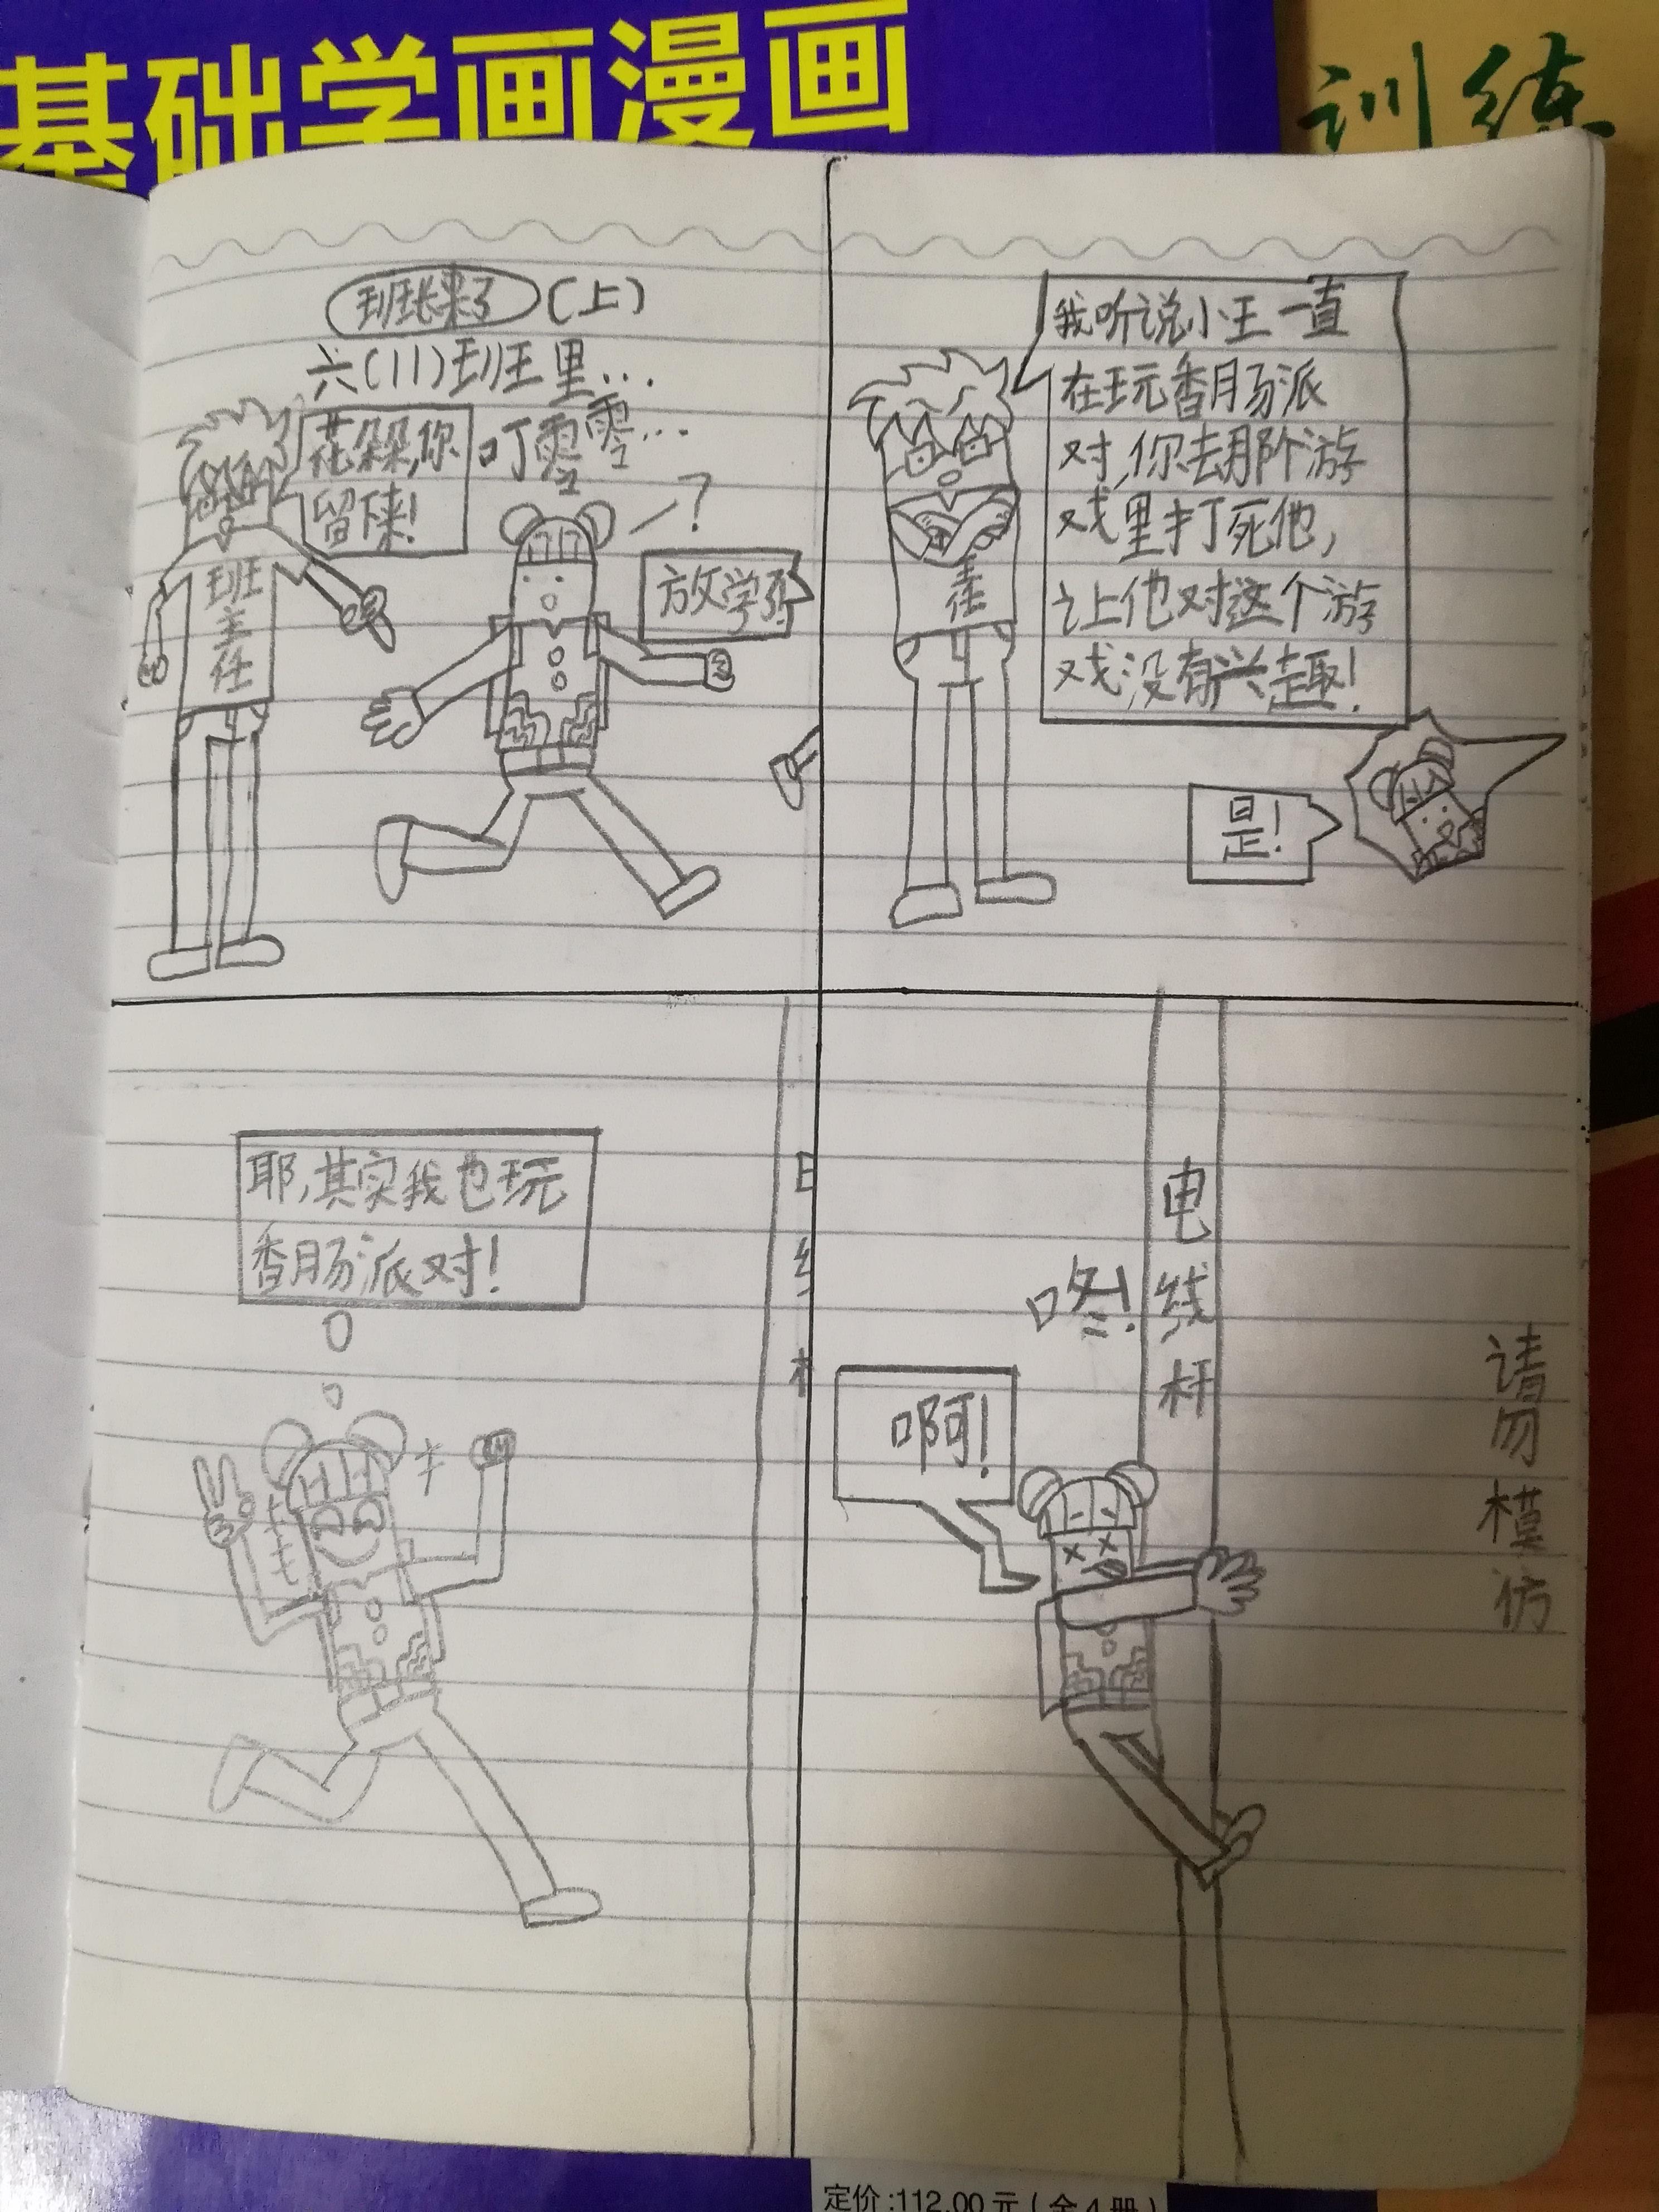 基础学画漫画
训练
班长来了(上)
六(11)班里...
花朵,你
留下来!
叮零零...
?
放学了
班主任
我听说小王一直
在玩香肠派
对,你去那个游
戏里打死他,
让他对这个游
戏没有兴趣!
主任
是!
耶,其实我也玩
香肠派对!
电线杆
咚!
啊!
请勿模仿
定价:112.00元(全4册)